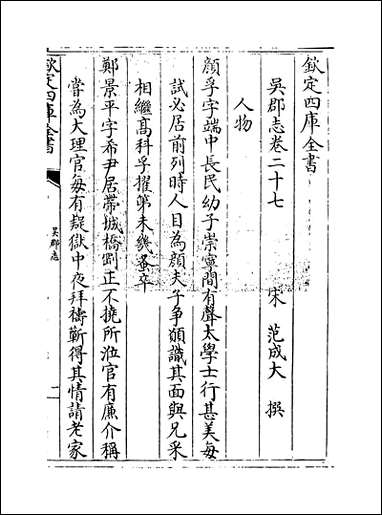 欽定四庫全書
吳郡志卷二十七
宋 范成大 撰
人物
顔孚字端中長民幼子崇寧間有聲太學士行甚美每
試必居前列時人目為顔夫子爭願識其面與兄采
相繼髙科孚擢第未幾蚤卒
鄭景平字希尹居帶城橋剛正不撓所涖官有廉介稱
嘗為大理官每有疑獄中夜拜禱蘄得其情請老家
欽定四庫全書
吳郡志
一